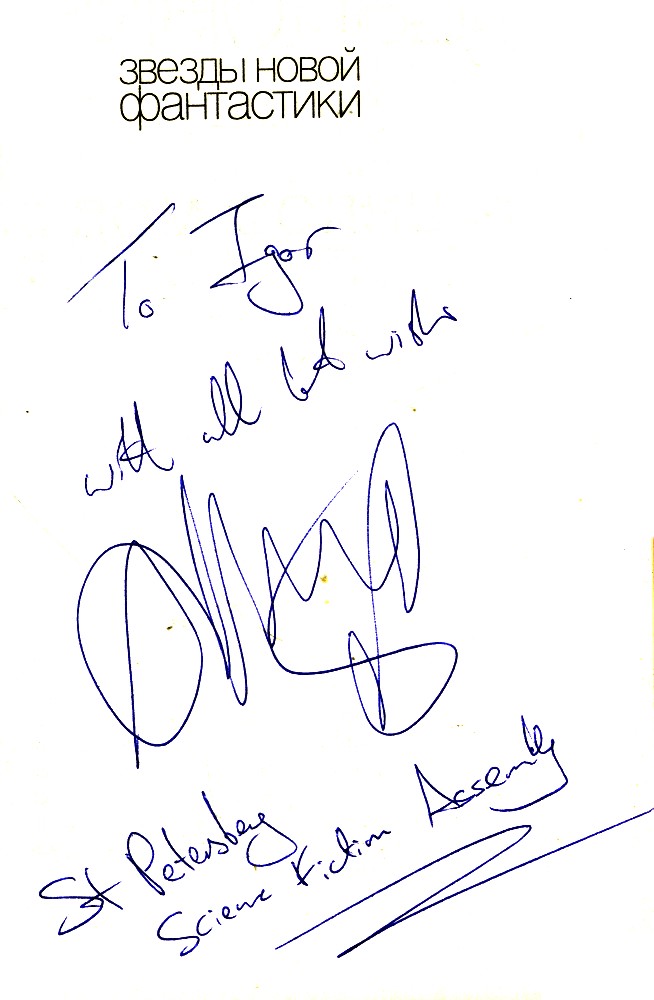 звезды новой
фантастики
To Igor
with all best wishes
St Petersburg
Science Fiction Assembly